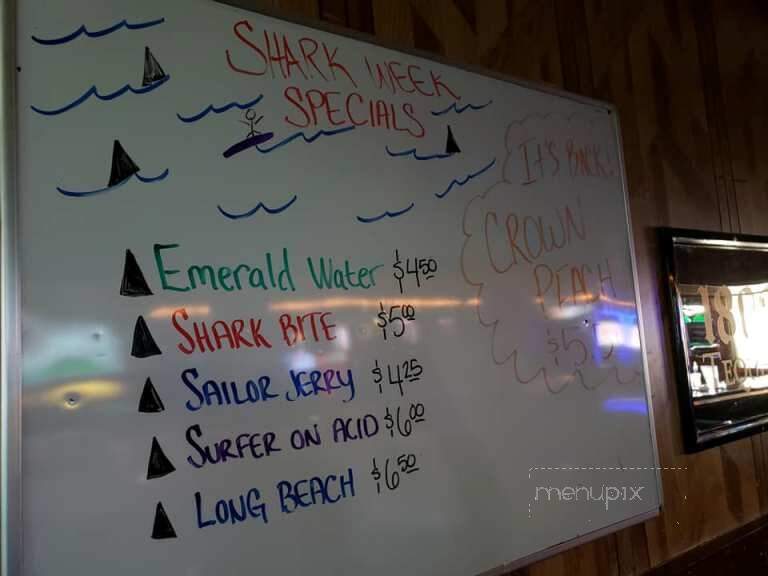 SHARK WEEK
SPECIALS
IT'S BACK!
CROWN
PEACH
Emerald Water $4.50
SHARK BITE $5.00
SAILOR JERRY $4.25
SURFER ON ACID $6.00
LONG BEACH $6.50
menupix